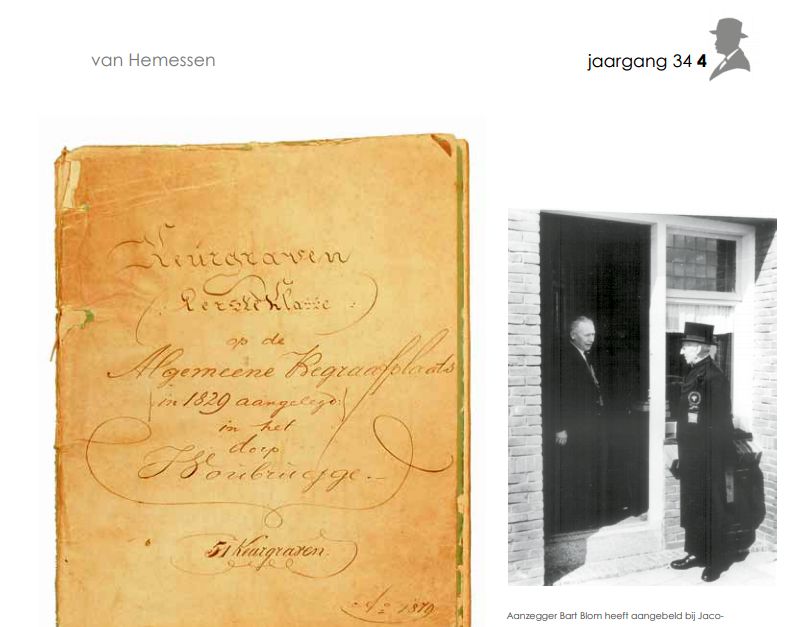 van Hemessen
jaargang 34 4
Keurgraven
Eerste Klasse
op de
Algemeene Begraafplaats
in 1829 aangelegd
in het
dorp
Woubrugge.
51 Keurgraven.
Ao 1879
Aanzegger Bart Blom heeft aangebeld bij Jaco-